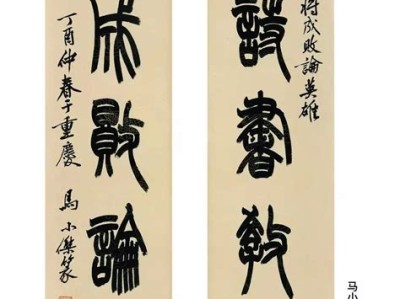 将成敗論英雄
詩書教
成敗論
丁酉仲春于重慶 馬小傑篆
马小